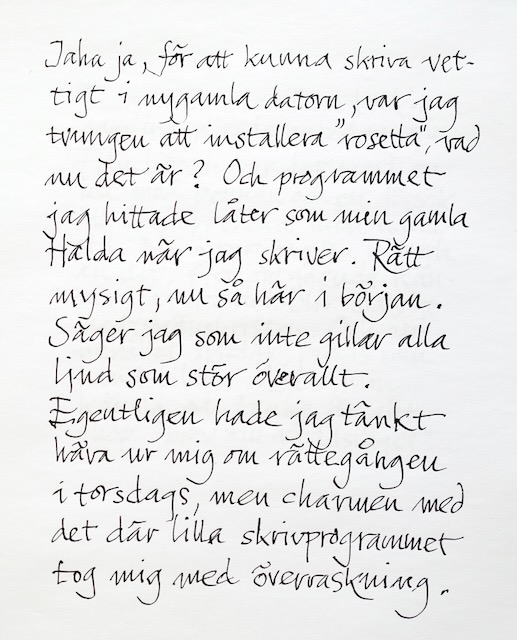 Jaha ja, för att kunna skriva vet-
tigt i nygamla datorn, var jag
tvungen att installera "rosetta", vad
nu det är? Och programmet
jag hittade låter som min gamla
Halda när jag skriver. Rätt
mysigt, nu så här i början.
Säger jag som inte gillar alla
ljud som stör överallt.
Egentligen hade jag tänkt
häva ur mig om rättegången
i torsdags, men charmen med
det där lilla skrivprogrammet
tog mig med överraskning.